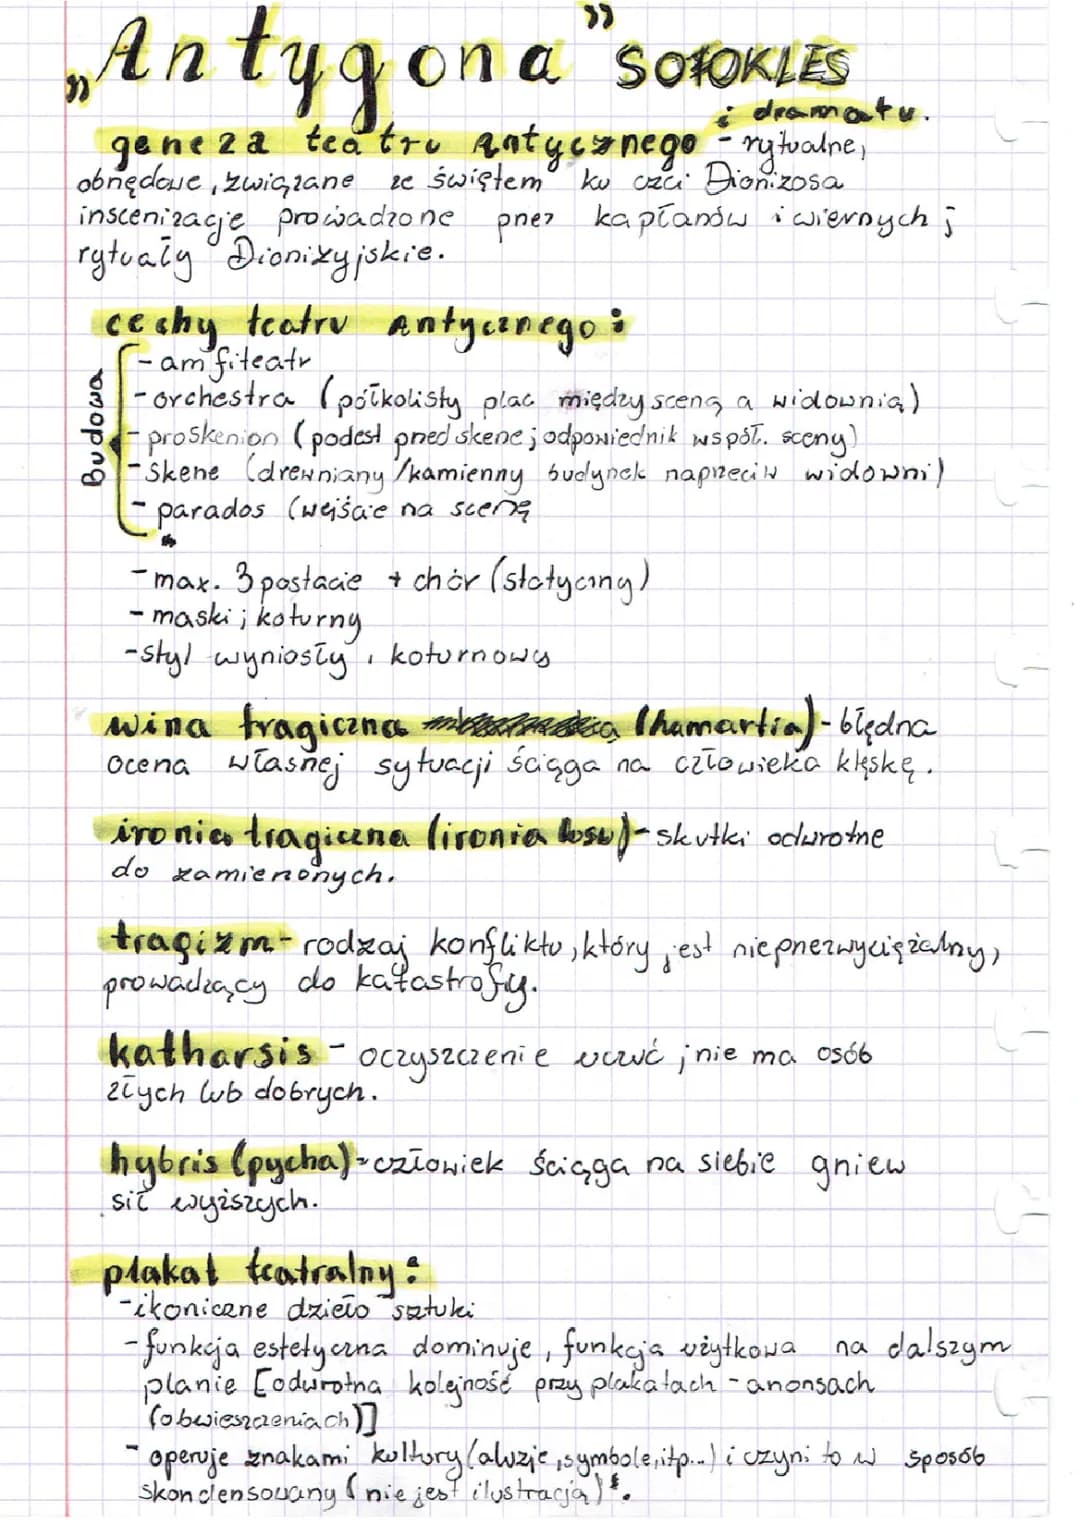 „Antygona" SOFOKLES
geneza teatru Antycznego i dramatu. - rytualne,
obrzędowe, związane ze świętem ku czci Dionizosa
inscenizacje prowadzone przez kapłanów i wiernych ;
rytuały Dionizyjskie.
cechy teatru Antycznego :
Budowa
- amfiteatr
- orchestra (półkolisty plac między sceną a widownią)
- proskenion (podest przed skene ; odpowiednik współ. sceny)
- skene (drewniany/kamienny budynek naprzeciw widowni)
- parados (wejście na scenę
- max. 3 postacie + chór (statyczny)
- maski ; koturny
- styl wyniosły, koturnowy
wina tragiczna (hamartia) - błędna
ocena własnej sytuacji ściąga na człowieka klęskę.
ironia tragiczna (ironia losu) - skutki odwrotne
do zamierzonych.
tragizm - rodzaj konfliktu, który jest nieprzezwyciężalny,
prowadzący do katastrofy.
katharsis - oczyszczenie uczuć ; nie ma osób
złych lub dobrych.
hybris (pycha) - człowiek ściąga na siebie gniew
sił wyższych.
plakat teatralny :
- ikoniczne dzieło sztuki
- funkcja estetyczna dominuje, funkcja użytkowa na dalszym
planie [odwrotna kolejność przy plakatach - anonsach
(obwieszczeniach)]
- operuje znakami kultury (aluzje, symbole, itp...) i czyni to w sposób
skondensowany (nie jest ilustracją).